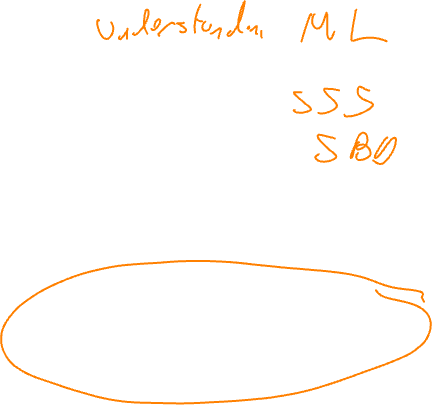 Understandin ML
SSS
SBD